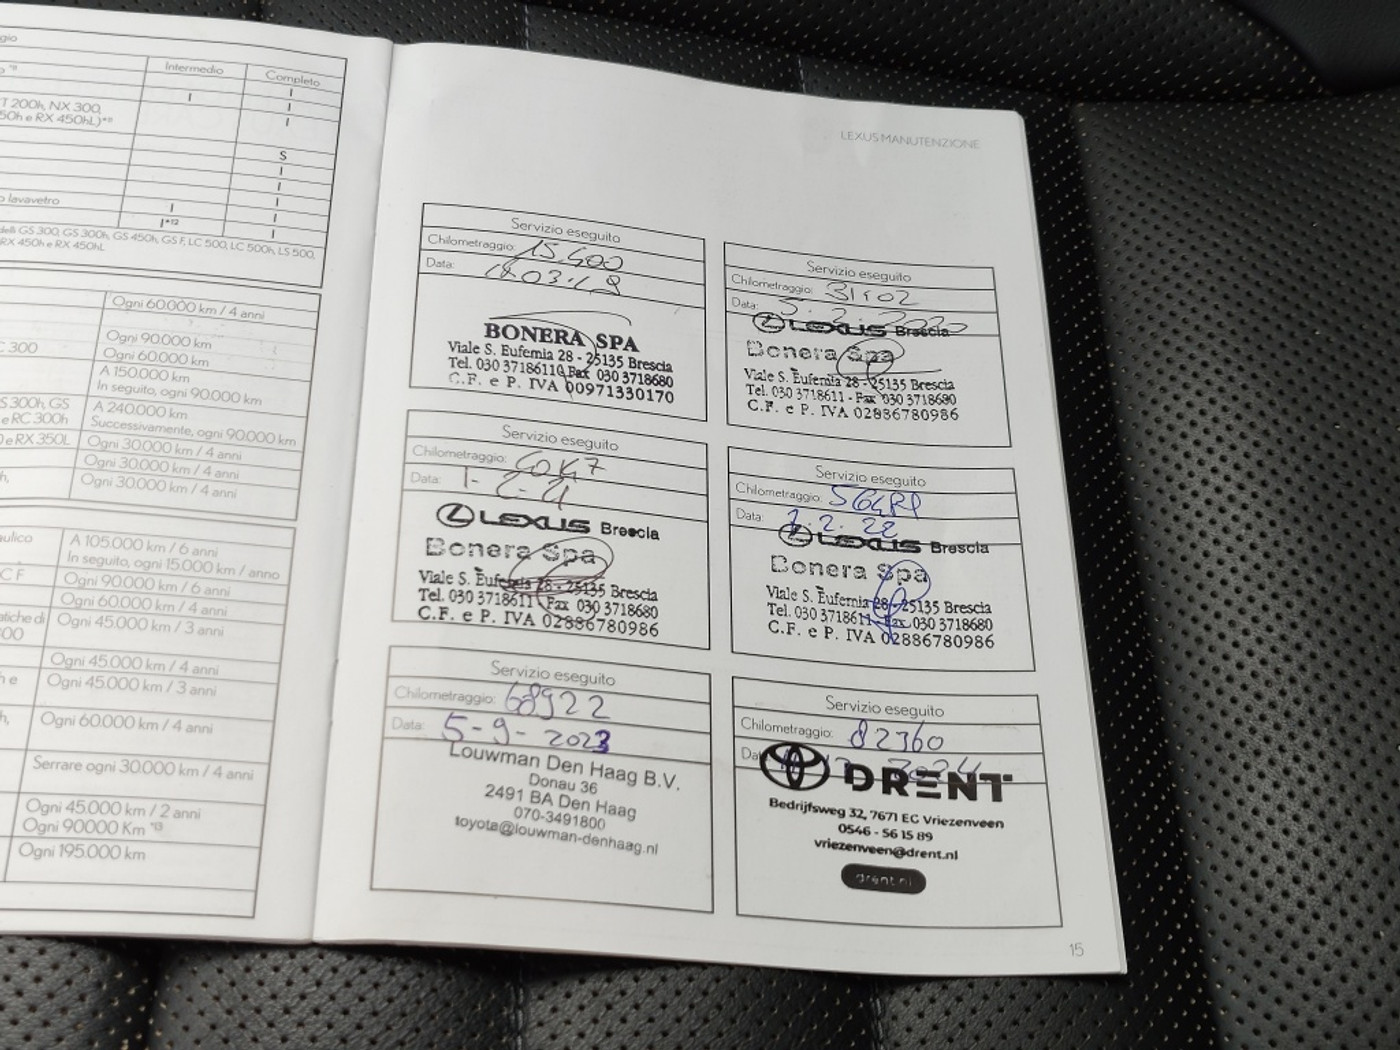 gio
Intermedio Completo
I
I I
T 200h, NX 300, I
50h e RX 450hL)
S
I
I
o lavavetro I I
I*12 I
delli GS 300, GS 300h, GS 450h, GS F, LC 500, LC 500h, LS 500,
RX 450h e RX 450hL
Ogni 60.000 km / 4 anni
Ogni 90.000 km
C 300 Ogni 60.000 km
A 150.000 km
In seguito, ogni 90.000 km
S 300h, GS A 240.000 km
e RC 300h Successivamente, ogni 90.000 km
0 e RX 350L Ogni 30.000 km / 4 anni
Ogni 30.000 km / 4 anni
h, Ogni 30.000 km / 4 anni
aulico A 105.000 km / 6 anni
In seguito, ogni 15.000 km / anno
C F Ogni 90.000 km / 6 anni
Ogni 60.000 km / 4 anni
atiche di Ogni 45.000 km / 3 anni
Ogni 45.000 km / 4 anni
h e Ogni 45.000 km / 3 anni
h, Ogni 60.000 km / 4 anni
Serrare ogni 30.000 km / 4 anni
Ogni 45.000 km / 2 anni
Ogni 90000 Km *13
Ogni 195.000 km
LEXUS MANUTENZIONE
Servizio eseguito
Chilometraggio: 15.400
Data:
BONERA SPA
Viale S. Eufemia 28 - 25135 Brescia
Tel. 030 3718611 Fax 030 3718680
C.F. e P. IVA 00971330170
Servizio eseguito
Chilometraggio:
Data:
LEXUS Brescia
Bonera Spa
Viale S. Eufemia 28 - 25135 Brescia
Tel. 030 3718611 - Fax 030 3718680
C.F. e P. IVA 02886780986
Servizio eseguito
Chilometraggio:
Data:
LEXUS Brescia
Bonera Spa
Viale S. Eufemia 28 - 25135 Brescia
Tel. 030 3718611 Fax 030 3718680
C.F. e P. IVA 02886780986
Servizio eseguito
Chilometraggio:
Data: 2.2.22
LEXUS Brescia
Bonera Spa
Viale S. Eufemia 28 - 25135 Brescia
Tel. 030 3718611 - Fax 030 3718680
C.F. e P. IVA 02886780986
Servizio eseguito
Chilometraggio: 68922
Data: 5-9-2023
Louwman Den Haag B.V.
Donau 36
2491 BA Den Haag
070-3491800
toyota@louwman-denhaag.nl
Servizio eseguito
Chilometraggio: 82360
2024
DRENT
Bedrijfsweg 32, 7671 EG Vriezenveen
0546 - 56 15 89
vriezenveen@drent.nl
drent.nl
15